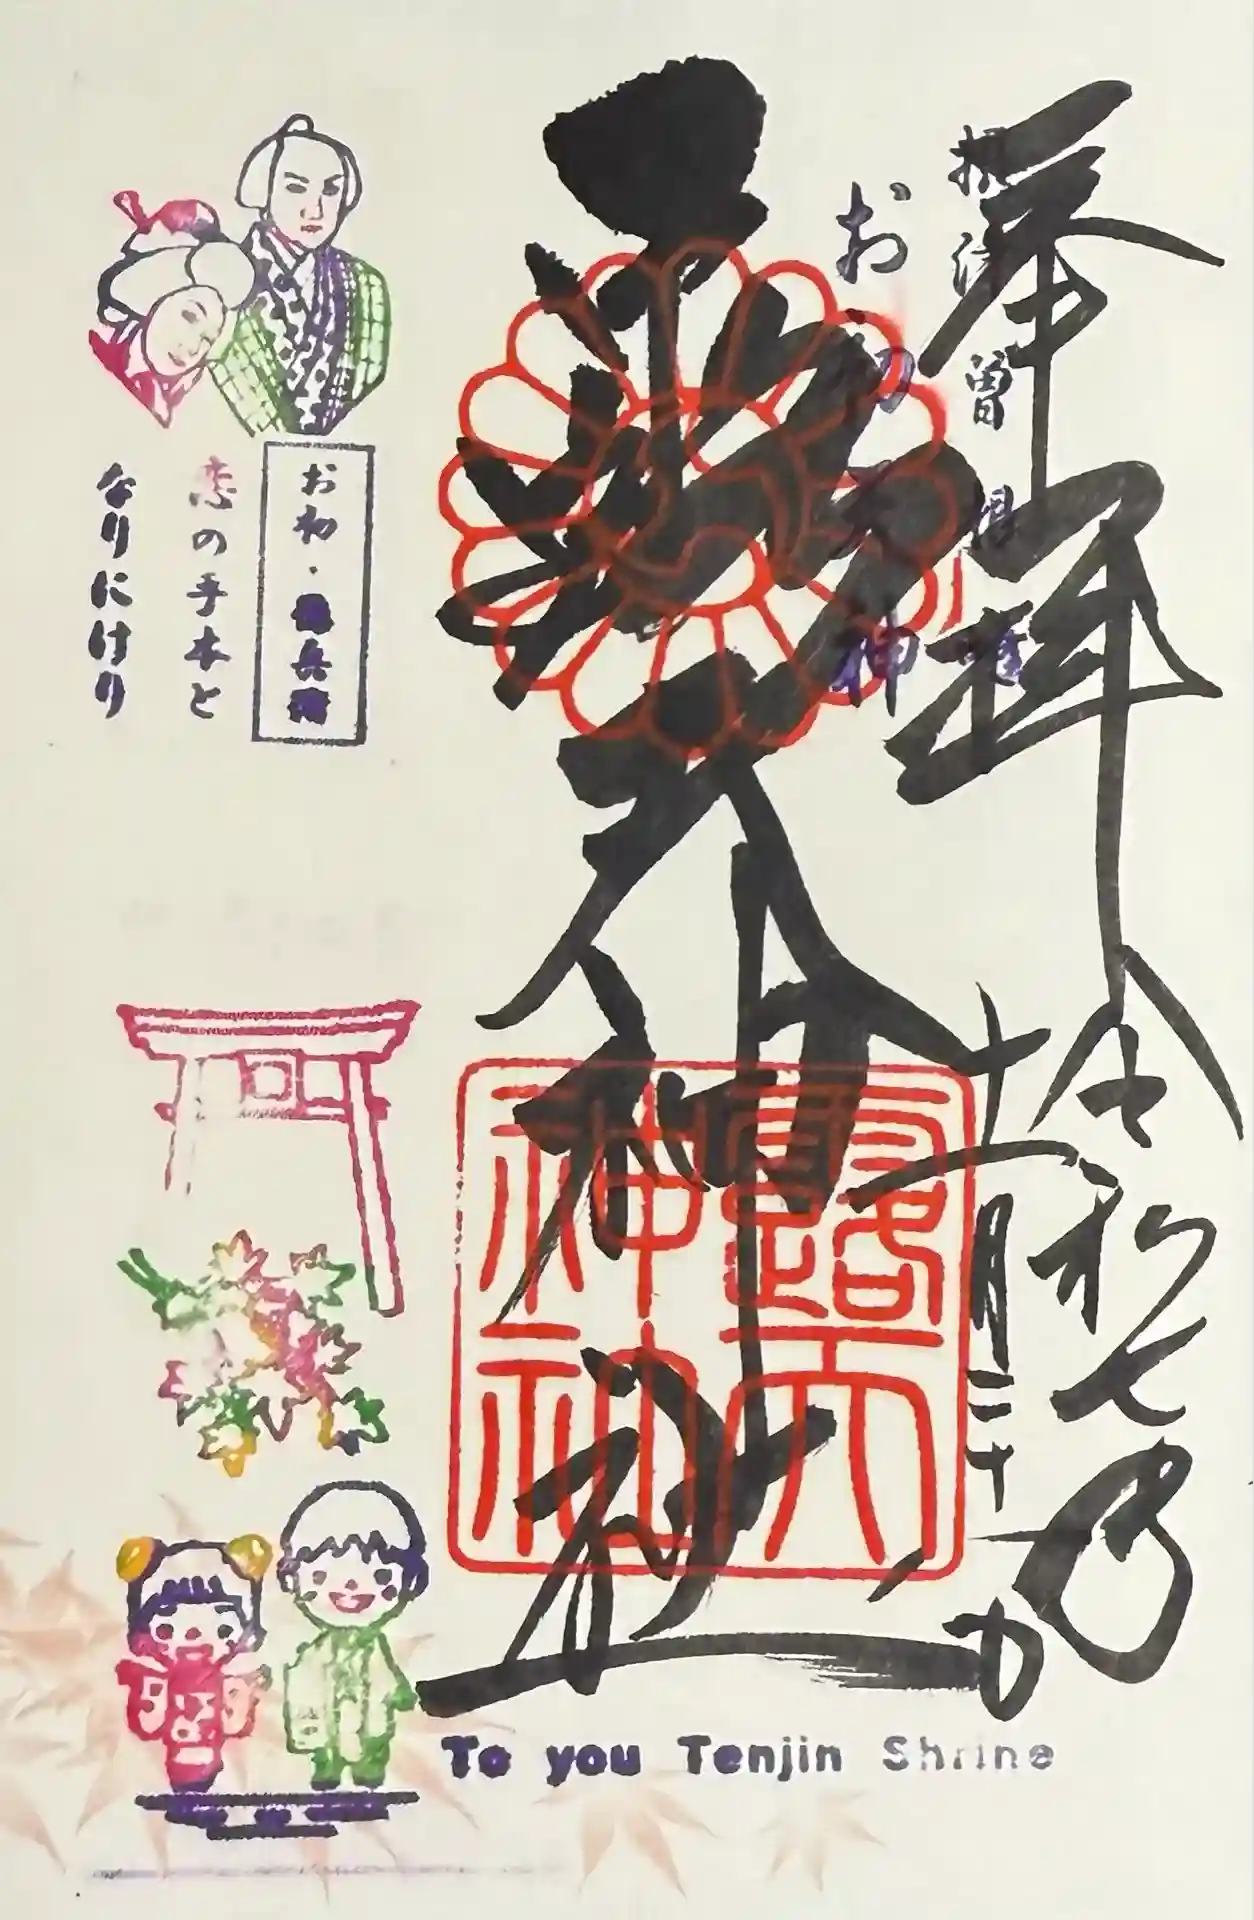 奉拝
令和七年
十一月二十日
摂津 曽根崎
お初天神
露天神社
露天
神社
お初・徳兵衛
恋の手本と
なりにけり
To you Tenjin Shrine